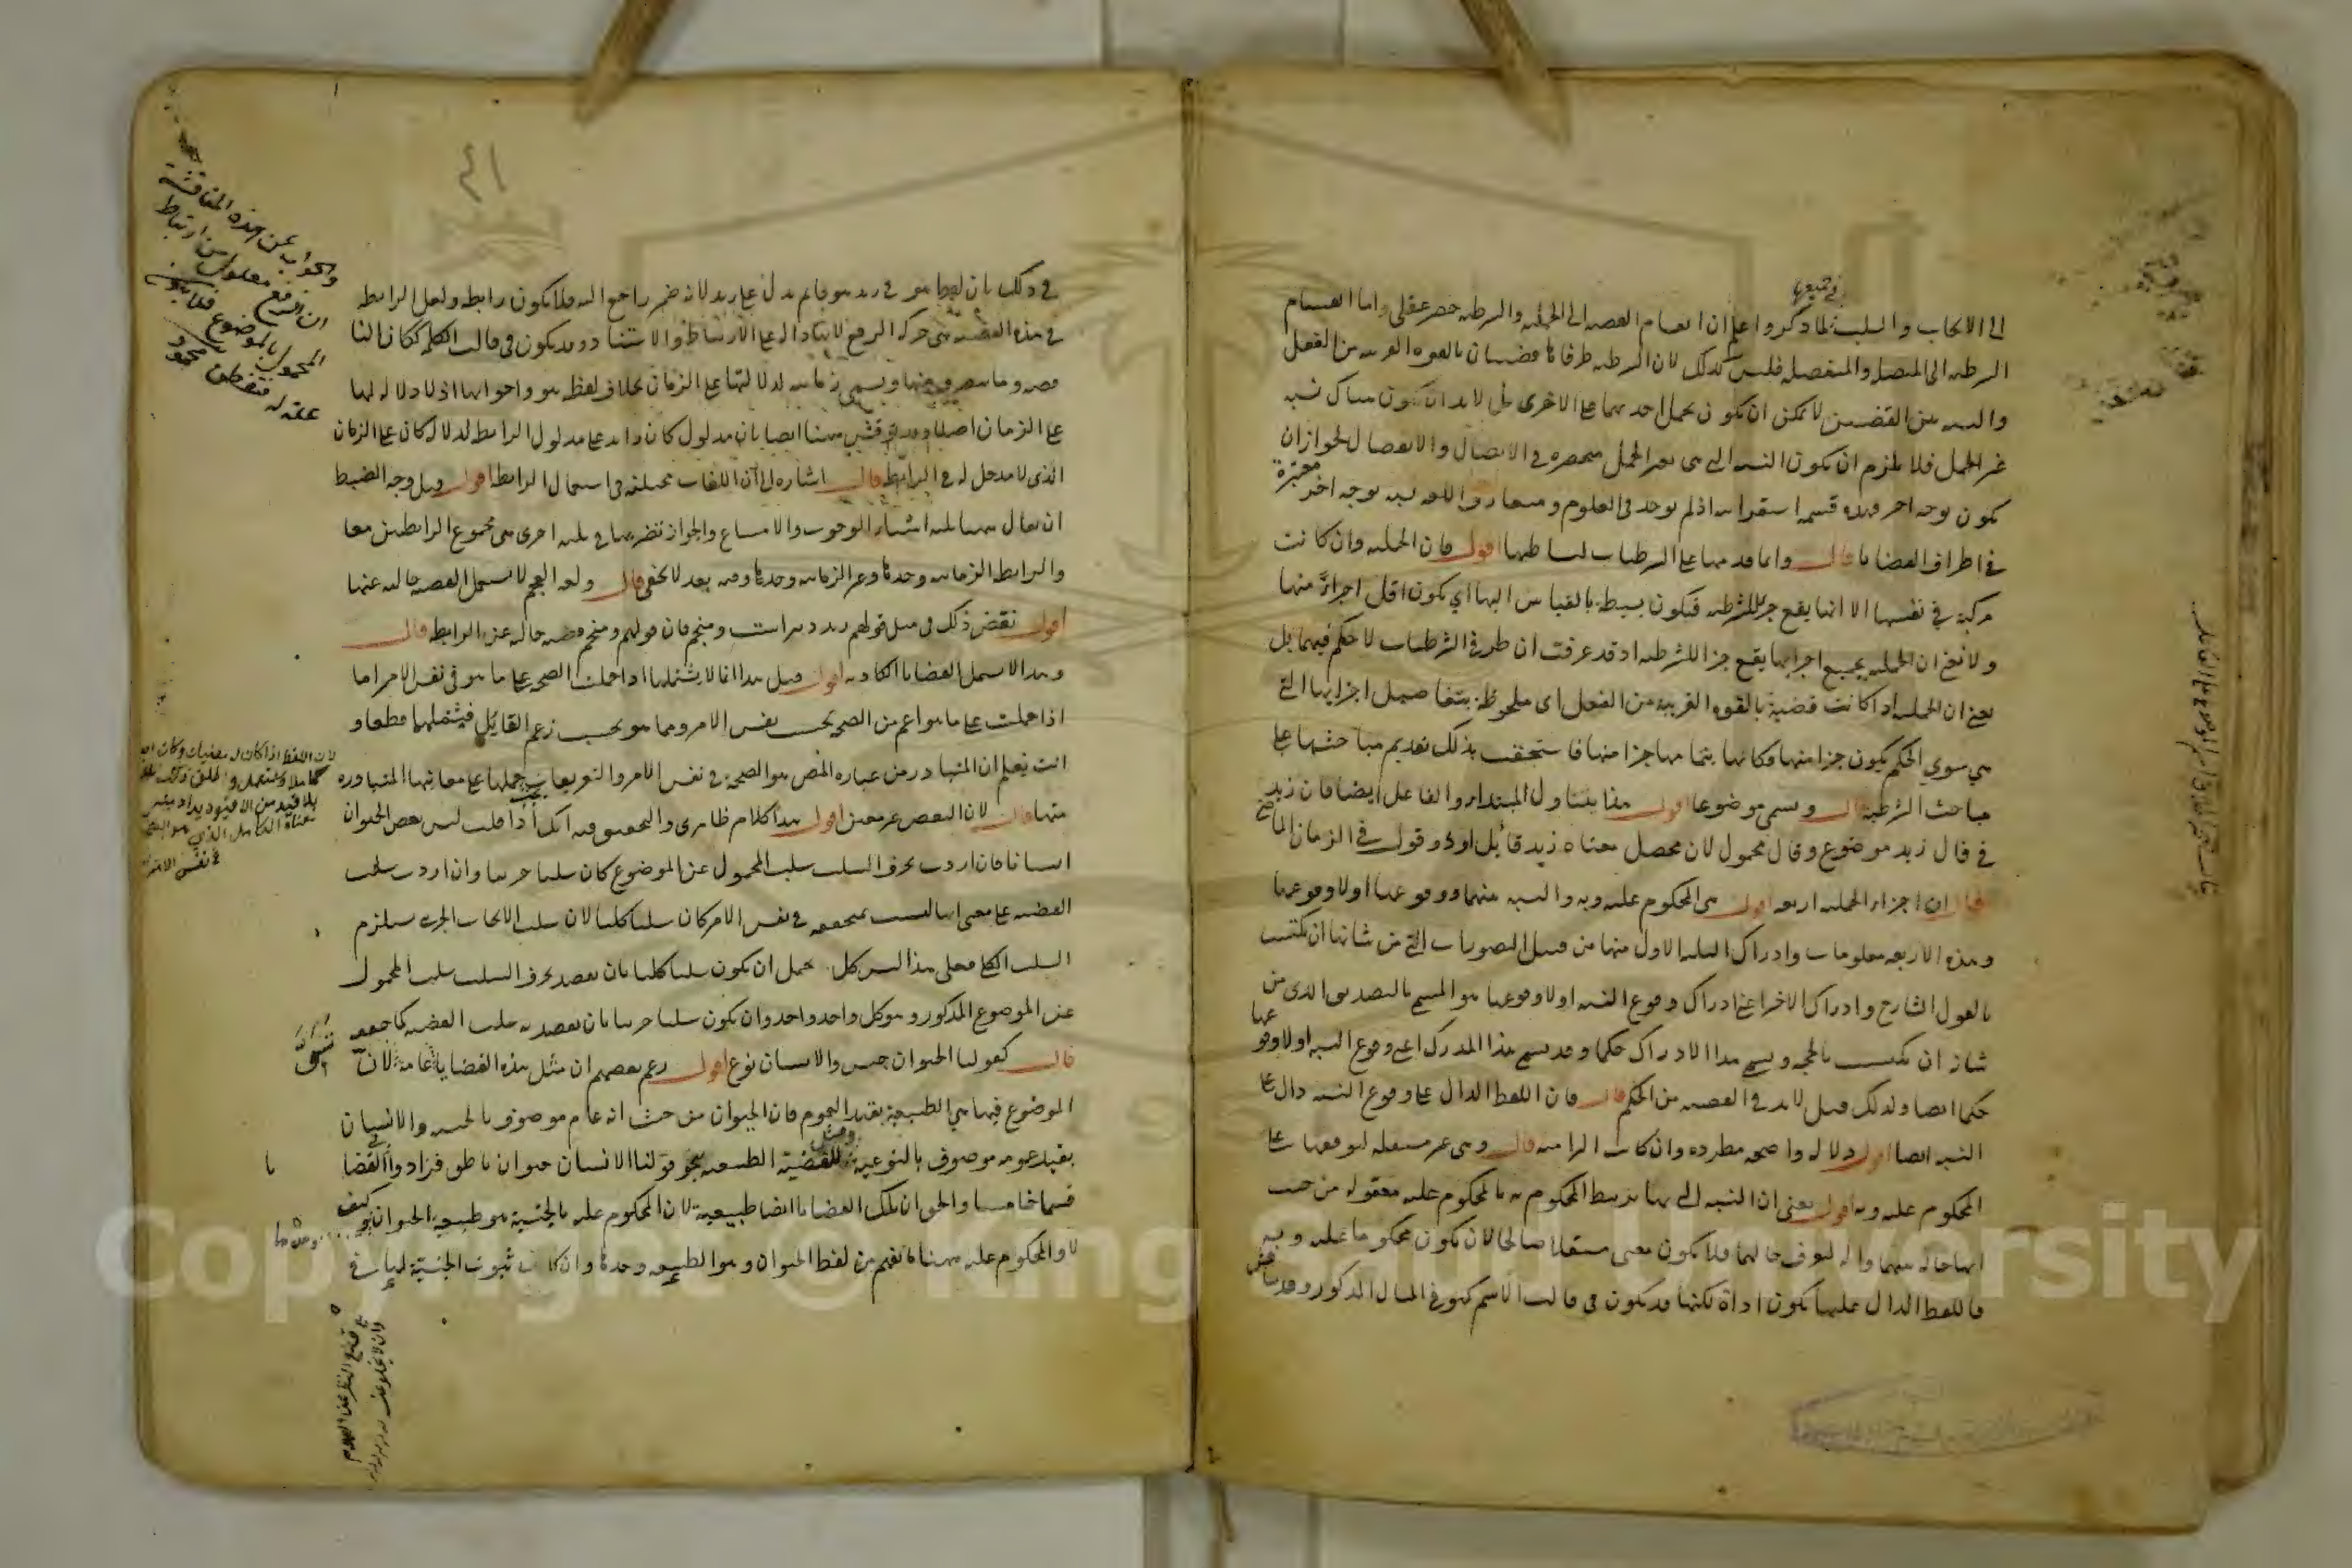 في جميعها
الى الايجاب والسلب لما ذكروا اعلم ان انقسام القضية الى الحملية والشرطية حصر عقلي واما انقسام
الشرطية الى المتصلة والمنفصلة فليس كذلك لان الشرطية طرفاها قضيتان بالقوة القريبة من الفعل
والنسبة بين القضيتين لا يمكن ان يكون بحمل احديهما على الاخرى بل لابد ان يكون هناك نسبة
غير الحمل فلا يلزم ان يكون النسبة التي هي غير الحمل منحصرة في الاتصال والانفصال لجواز ان
يكون بوجه اخر وهذه قسمة استقرائية اذ لم يوجد في العلوم ومتعارف اللغة نسبة بوجه اخر معتبرة
في اطراف القضايا قال وانما قدمها على الشرطيات لبساطتها اقول فان الحملية وان كانت
مركبة في نفسها الا انها يقع جزأ للشرطية فتكون بسيطة بالقياس اليها اي يكون اقل اجزاءً منها
ولا نعني ان الحملية بجميع اجزائها يقع جزأ للشرطية اذ قد عرفت ان طرفي الشرطيات لا حكم فيهما بل
نعني ان الحملية اذا كانت قضية بالقوة القريبة من الفعل اي ملحوظة بتفاصيل اجزائها التي
هي سوى الحكم يكون جزأ منها فكانها بتمامها جزأ منها فاستحقت بذلك تقديم مباحثها على
مباحث الشرطية قال ويسمى موضوعا اقول هذا يتناول المبتداء والفاعل ايضا فان زيد
في قال زيد موضوع وقال محمول لان محصل معناه زيد قائل او ذو قول في الزمان الماضي
قال ان اجزاء الحملية اربعة اقول هي المحكوم عليه وبه والنسبة بينهما ووقوعها اولا وقوعها
وهذه الاربعة معلومات وادراك الثلثة الاول منها من قبيل التصورات التي من شانها ان يكتسب
بالقول الشارح وادراك الاخر اعني ادراك وقوع النسبة اولا وقوعها هو المسمى بالتصديق الذي من
شانه ان يكتسب بالحجة ويسمى هذا الادراك حكما وقد يسمى هذا المدرك اعني وقوع النسبة اولا وقوعها
حكما ايضا ولذلك قيل لابد في القضية من الحكم قال فان اللفظ الدال على وقوع النسبة دال على
النسبة ايضا اقول دلالة واضحة مطردة وان كانت التزامية قال وهي غير مستقلة لتوقفها على
المحكوم عليه وبه اقول يعني ان النسبة التي بها يرتبط المحكوم به بالمحكوم عليه معقولة من حيث
انها حالة بينهما وآلة لتعرف حالهما فلا يكون معنى مستقلا صالحا لان يكون محكوما عليه وبه
فاللفظ الدال عليها يكون اداة لكنها قد يكون في قالب الاسم كهو في المثال المذكور وقد يناقش
٤١
في ذلك بان لفظ هو في زيد هو قائم يدل على زيد لانه ضمير راجع اليه فلا يكون رابطة ولعل الرابطة
في هذه القضية هي حركة الرفع لانها دالة على الارتباط والاسناد وقد يكون في قالب الكلمة ككان الناقصة
وما يتصرف منها ويسمى زمانية لدلالتها على الزمان بخلاف لفظ هو واخواتها اذ لا دلالة لها
على الزمان اصلا وقد يناقش هنا ايضا بان مدلول كان زائد على مدلول الرابطة لدلالة كان على الزمان
الذي لا مدخل له في الرابطة قال اشارة الى ان اللغات مختلفة في استعمال الرابطة اقول قيل وجه الضبط
ان يقال هنا ثلثة اشياء الوجوب والامتناع والجواز تضربها في ثلثة اخرى هي مجموع الرابطتين معا
والرابطة الزمانية وحدها وغير الزمانية وحدها وفيه بعد لا يخفى قال ولغة العجم لا تستعمل القضية خالية عنها
اقول نقض ذلك في مثل قولهم زيد دبير است ومنجم فان قولهم ومنجم قضية خالية عن الرابطة قال
وهذا لا يشمل القضايا الكاذبة اقول قيل هذا انما لا يشتملها اذا حملت الصحة على ما هو في نفس الامر اما
اذا حملت على ما هو اعم من الصحة بحسب نفس الامر ومما هو بحسب زعم القائل فيشملها قطعا و
انت تعلم ان المتبادر من عبارة المص هو الصحة في نفس الامر والتعريفات يجب حملها على معانيها المتبادرة
منها قال لان البعض غير معين اقول هذا كلام ظاهري والتحقيق فيه انك اذا قلت ليس بعض الحيوان
انسانا فان اردت بحرف السلب سلب المحمول عن الموضوع كان سلبا جزئيا وان اردت سلب
القضية على معنى انها ليست بمتحققة في نفس الامر كان سلبا كليا لان سلب الايجاب الجزئي يستلزم
السلب الكلي فعلى هذا ليس كل يحتمل ان يكون سلبا كليا بان يقصد بحرف السلب سلب المحمول
عن الموضوع المذكور وهو كل واحد واحد وان يكون سلبا جزئيا بان يقصد به سلب القضية كما حققه
قال كقولنا الحيوان جنس والانسان نوع اقول زعم بعضهم ان مثل هذه القضايا عامة لان
الموضوع فيها هي الطبيعة بقيد العموم فان الحيوان من حيث انه عام موصوف بالجنسية والانسان
بقيد عمومه موصوف بالنوعية ومثل للقضية الطبيعية بنحو قولنا الانسان حيوان ناطق فزادوا في القضايا
قسما خامسا والحق ان تلك القضايا ايضا طبيعية لان المحكوم عليه بالجنسية هو طبيعة الحيوان كيف
لا والمحكوم عليه ههنا ما يفهم من لفظ الحيوان وهو الطبيعة وحدها وان كان ثبوت الجنسية لها في
والجواب عن هذه المناقشة
ان الرفع معلول من ارتباط
المحمول بالموضوع فلا يكون
علة له فتفطن
لان اللفظ اذا كان له معنيان وكان احدهما
كاملا
بلا قيد من القيود يراد
معناه الكامل الذي هو
في نفس الامر